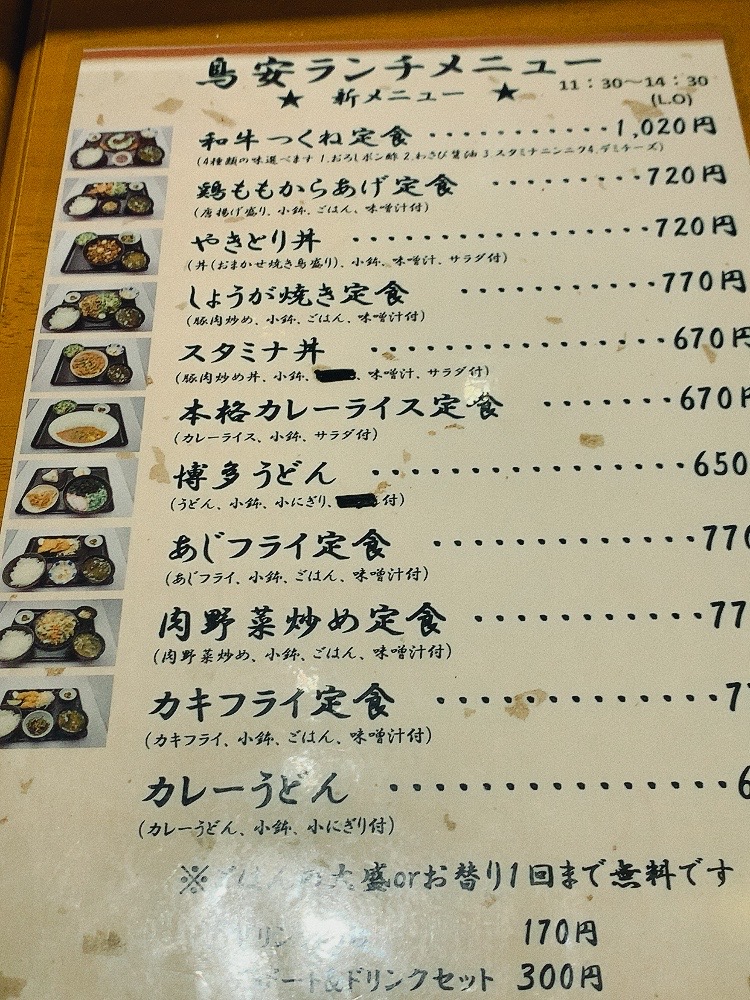 鳥安ランチメニュー
★ 新メニュー ★
11：30～14：30
(L.O)
和牛つくね定食 ・・・・・・・・・・・1,020円
(4種類の味選べます 1.おろしポン酢 2.わさび醤油 3.スタミナニンニク4.デミチーズ)
鶏ももからあげ定食 ・・・・・・・・・720円
(唐揚げ盛り、小鉢、ごはん、味噌汁付)
やきとり丼 ・・・・・・・・・・・・・・・・・720円
(丼(おまかせ焼き鳥盛り)、小鉢、味噌汁、サラダ付)
しょうが焼き定食 ・・・・・・・・・・・770円
(豚肉炒め、小鉢、ごはん、味噌汁付)
スタミナ丼 ・・・・・・・・・・・・・・・・・670円
(豚肉炒め丼、小鉢、味噌汁、サラダ付)
本格カレーライス定食 ・・・・・・・670円
(カレーライス、小鉢、サラダ付)
博多うどん ・・・・・・・・・・・・・・・・・650
(うどん、小鉢、小にぎり、付)
あじフライ定食 ・・・・・・・・・・・・・770
(あじフライ、小鉢、ごはん、味噌汁付)
肉野菜炒め定食 ・・・・・・・・・・・77
(肉野菜炒め、小鉢、ごはん、味噌汁付)
カキフライ定食 ・・・・・・・・・・・・・77
(カキフライ、小鉢、ごはん、味噌汁付)
カレーうどん ・・・・・・・・・・・・・・・6
(カレーうどん、小鉢、小にぎり付)
※ごはんの大盛orお替り1回まで無料です
170円
ート&ドリンクセット 300円